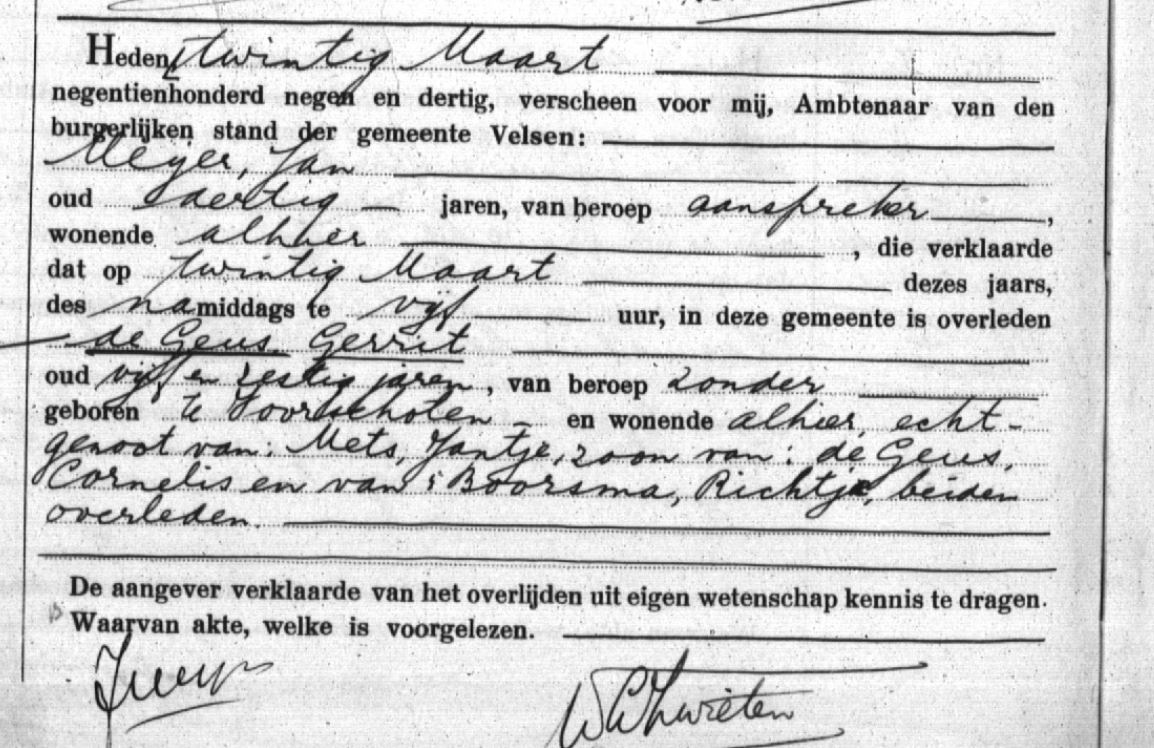 Heden, twintig Maart
negentienhonderd negen en dertig, verscheen voor mij, Ambtenaar van den
burgerlijken stand der gemeente Velsen:
Meyer, Jan
oud dertig jaren, van beroep aanspreker,
wonende alhier, die verklaarde
dat op twintig Maart dezes jaars,
des namiddags te vijf uur, in deze gemeente is overleden
de Geus, Gerrit
oud vijf en zestig jaren, van beroep zonder
geboren te Voorschoten en wonende alhier, echt-
genoot van: Mets, Jantje, zoon van: de Geus,
Cornelis en van: Boorsma, Richtje, beiden
overleden.
De aangever verklaarde van het overlijden uit eigen wetenschap kennis te dragen.
Waarvan akte, welke is voorgelezen.